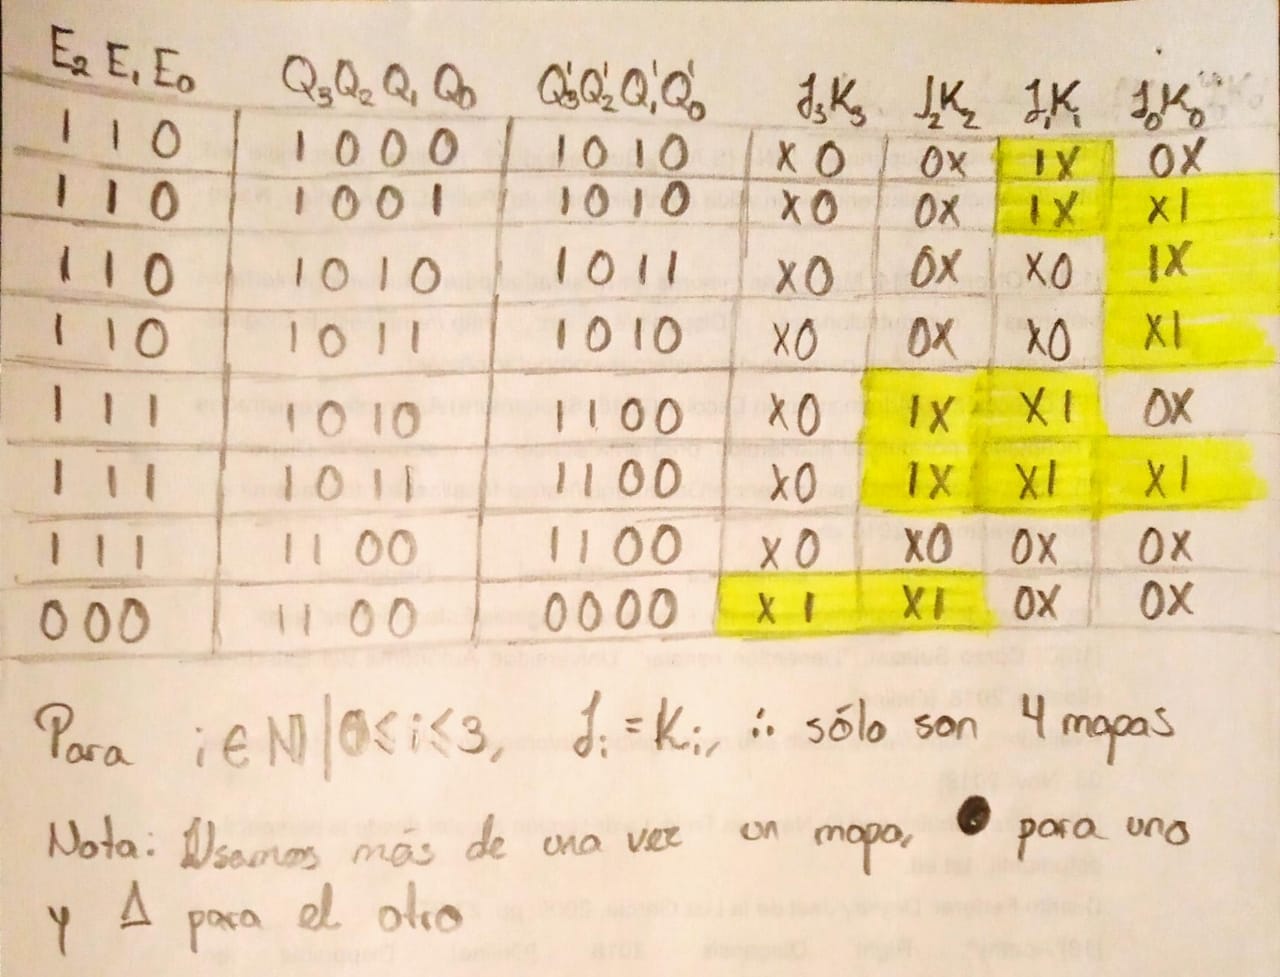 E₂ E₁ E₀ Q₃Q₂ Q₁ Q₀ Q₃'Q₂'Q₁'Q₀' J₃K₃ J₂K₂ J₁K₁ J₀K₀
1 1 0 1 0 0 0 1 0 1 0 X 0 0X 1X 0X
1 1 0 1 0 0 1 1 0 1 0 X 0 0X 1X X1
1 1 0 1 0 1 0 1 0 1 1 X0 0X X0 1X
1 1 0 1 0 1 1 1 0 1 0 X0 0X X0 X1
1 1 1 1 0 1 0 1 1 0 0 X0 1X X1 0X
1 1 1 1 0 1 1 1 1 0 0 X0 1X X1 X1
1 1 1 1 1 0 0 1 1 0 0 X0 X0 0X 0X
0 0 0 1 1 0 0 0 0 0 0 X 1 X1 0X 0X
Para i ∈ N | 0 ≤ i ≤ 3, Jᵢ = Kᵢ, ∴ sólo son 4 mapas
Nota: Usamos más de una vez un mapa, ● para uno
y Δ para el otro